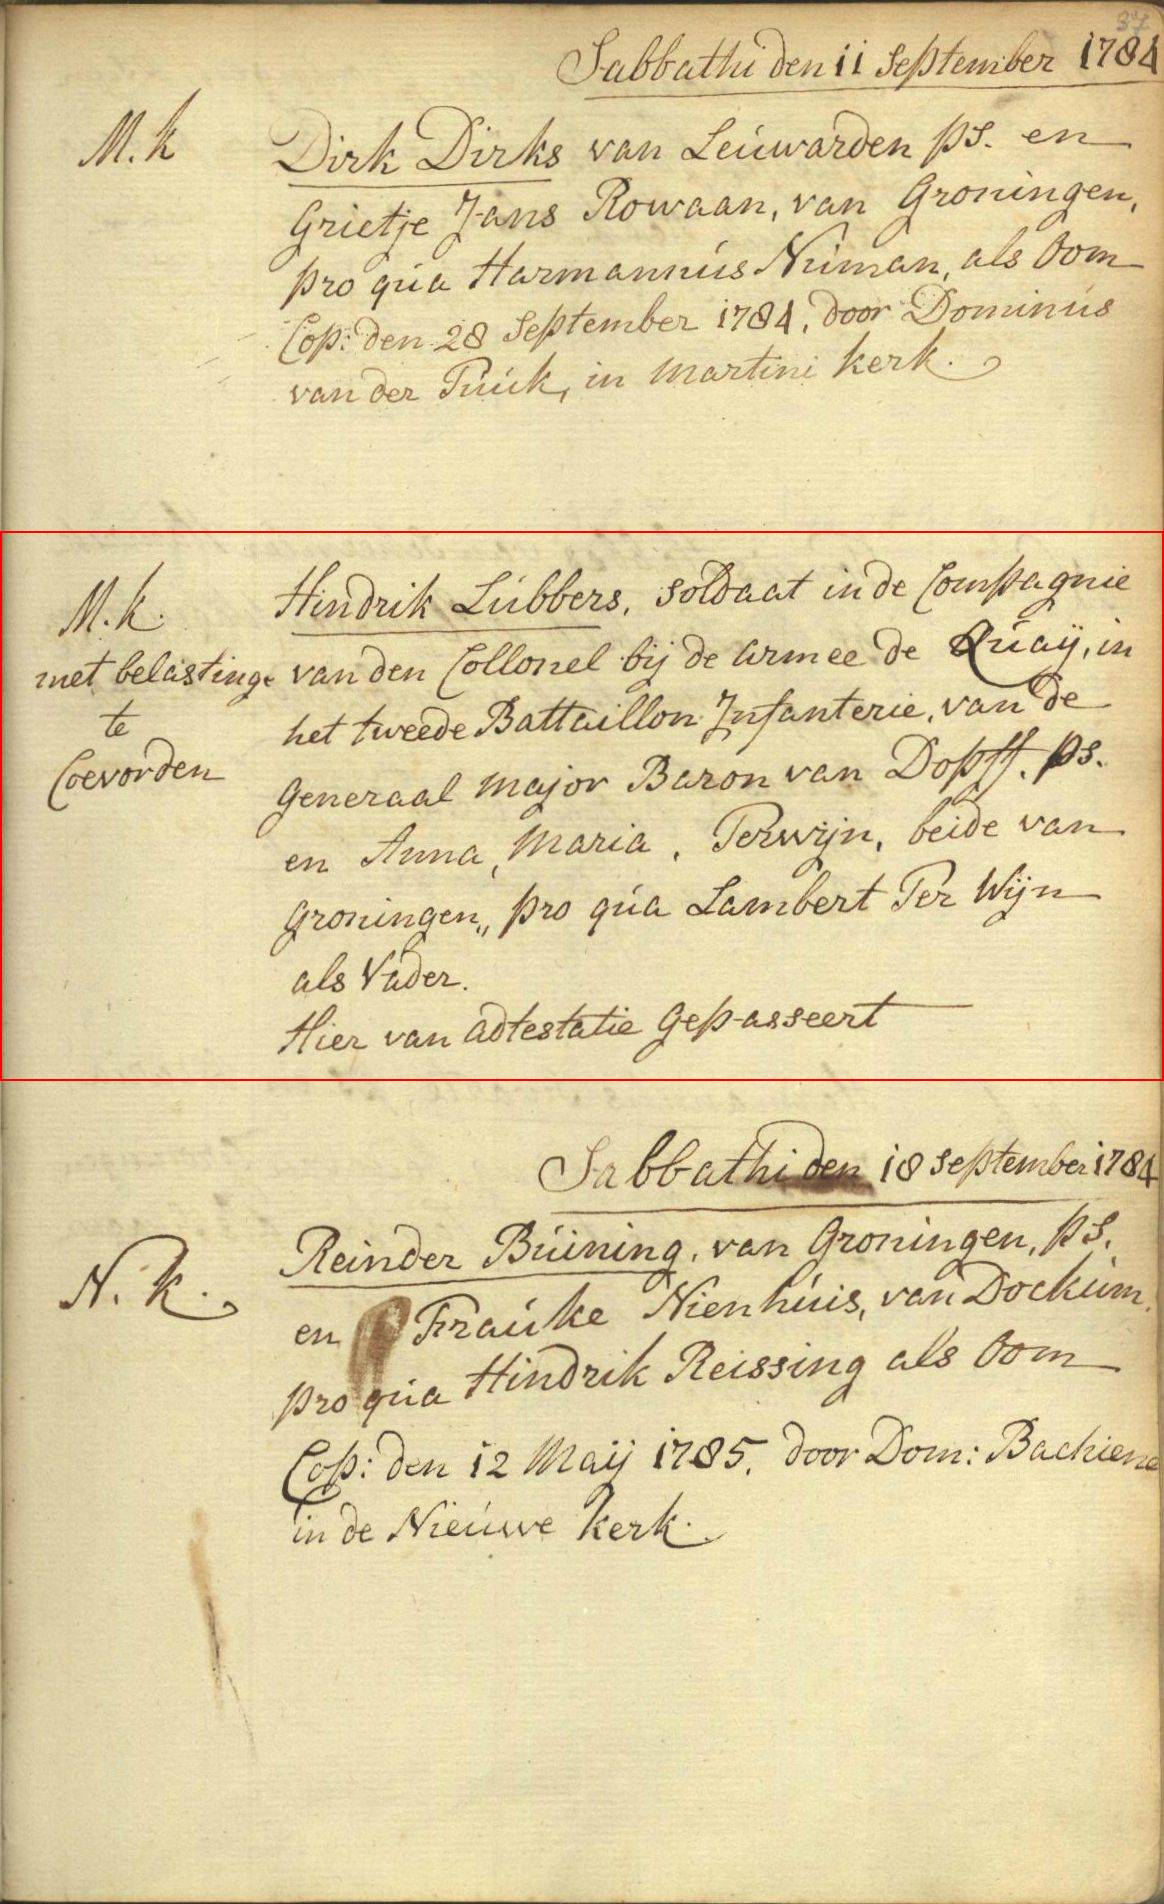 37
Sabbathi den 11 September 1784
M. k
Dirk Dirks van Leúwarden ps. en
Grietje Jans Rowaan, van Groningen,
pro qúa Harmannús Núman, als Oom
Cop: den 28 September 1784, door Dominús
van der Túúk, in Martini kerk.
M. k.
met belastinge
te
Coevorden
Hindrik Lúbbers, soldaat in de Compagnie
van den Collonel bij de Armee de Qúaij, in
het tweede Battaillon Infanterie, van de
Generaal Major Baron van Dopff. ps.
en Anna, Maria, Terwijn, beide van
Groningen,, pro qúa Lambert Ter Wijn
als Vader.
Hier van adtestatie Gepasseert
Sabbathi den 18 September 1784
N. k.
Reinder Búining, van Groningen, ps.
en Fraúke Nienhúis, van Dockúm,
pro qúa Hindrik Reissing als Oom
Cop: den 12 Maij 1785, door Dom: Bachiene
in de Nieúwe kerk.